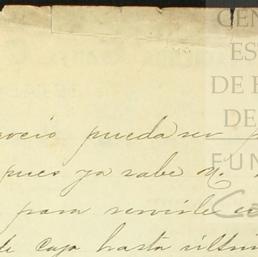 CEN
ES
DE
DE
FUN
pueda ser
pues ya sabe V.
para servirle
de caja hasta últim